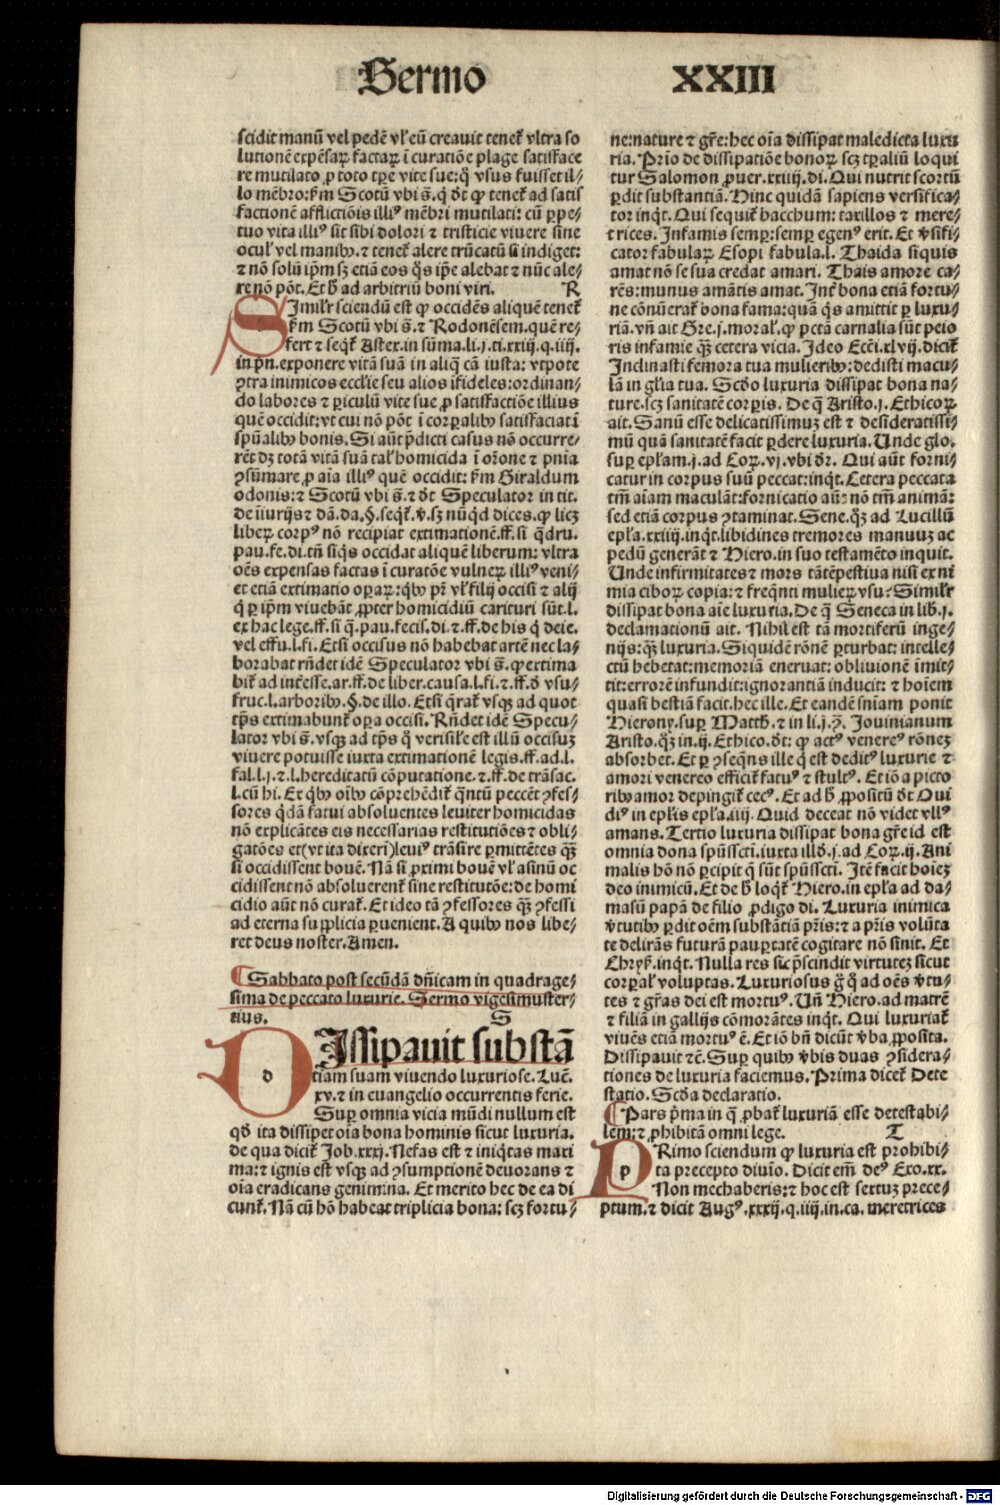 Sermo XXIII
scidit manū vel pedē vl' eū creauit tenet̄ vltra so
lutionē expēsaꝝ factaꝝ ī curatiōe plage satisface
re mutilato ꝓ toto tꝑe vite sue: q̄ vsus fuisset il⸗
lo mēbro: ẜm Scotū vbi s̄. q̇ dt̄ ꝙ tenet̄ ad satis
factionē afflictiōis illiꝰ mēbri mutilati: cū ꝑpe⸗
tuo vita illiꝰ sit sibi dolori ⁊ tristicie viuere sine
ocul' vel manibꝫ. ⁊ tenet̄ alere trūcatū si indiget:
⁊ nō solū ip̄m sꝫ etiā eos q̄s ip̄e alebat ⁊ nūc ale⸗
re nō pōt. Et h̄ ad arbitriū boni viri. R
SImilr̄ sciendū est ꝙ occidēs aliquē tenet̄
ẜm Scotū vbi s̄. ⁊ Rodonēsem. quē re⸗
fert ⁊ seqt̄ Astex. in sūma. li. j. ti. xxiij. q. iiij.
in pn̄. exponere vitā suā in aliq̄ cā iusta: vtpote
ꝯtra inimicos eccl'ie seu alios ifideles: ordinan⸗
do labores ⁊ ꝑiculū vite sue ꝓ satisfactiōe illius
quē occidit: vt cui nō pōt ī corꝑalibꝫ satisfaciat ī
spūalibꝫ bonis. Si aūt p̄dicti casus nō occurre⸗
rēt dꝫ totā vitā suā tal' homicida ī or̄one ⁊ pn̄ia
ꝯsūmare ꝓ aīa illiꝰ quē occidit: ẜm Giraldum
odonis: ⁊ Scotū vbi s̄. ⁊ dt̄ Speculator in tit.
de iīurijs ⁊ dā. da. §. seqt̄. v̄. sꝫ nūqd dices. ꝙ licꝫ
libeꝝ corpꝰ nō recipiat extimationē. ff. si q̄dru.
pau. fe. di. tn̄ siq̄s occidat aliquē liberum: vltra
oēs expensas factas ī curatōe vulneꝝ illiꝰ veni⸗
et etiā extimatio oꝑaꝝ: qͥbꝫ pr̄ vl' filij occisi ⁊ alij
q̇ ꝑ ip̄m viuebāt ꝓpter homicidiū carituri sūt. l.
ex hac lege. ff. si q̄. pau. fecis. di. ⁊. ff. de his q̇ deie.
vel effu. l. fi. Etsi occisus nō habebat artē nec la⸗
borabat rn̄det idē Speculator vbi s̄. ꝙ extima
bit̄ ad int̄esse. ar. ff. de liber. causa. l. fi. ⁊. ff. d̄ vsu⸗
fruc. l. arboribꝫ. §. de illo. Etsi q̄rat̄ vsqꝫ ad quot
tp̄s extimabunt̄ oꝑa occisi. Rn̄det idē Specu⸗
lator vbi s̄. vsqꝫ ad tp̄s q̄ verisil'e est illū occisuꝫ
viuere potuisse iuxta extimationē legis. ff. ad. l.
fal. l. j. ⁊. l. hereditatū cōputatione. ⁊. ff. de trāsac.
l. cū hi. Ex qͥbꝫ oībꝫ cōprehēdit̄ q̄ntū peccēt ꝯfes⸗
sores q̇dā fatui absoluentes leuiter homicidas
nō explicātes eis necessarias restitutiōes ⁊ obli⸗
gatōes et (vt ita dixerī) leuiꝰ trāsire ꝑmittētes qꝫ̄
si occidissent bouē. Nā si ꝓximi bouē vl' asinū oc
cidissent nō absoluerent̄ sine restitutōe: de homi
cidio aūt nō curat̄. Et ideo tā ꝯfessores qꝫ̄ ꝯfessi
ad eterna supplicia ꝑuenient. A quibꝫ nos libe⸗
ret deus noster. Amen.
¶ Sabbato post secūdā dn̄icam in quadrage⸗
sima de peccato luxurie. Sermo vigesimuster⸗
tius. S
DIssipauit substā
d tiam suam viuendo luxuriose. Luc̄.
xv. ⁊ in euangelio occurrentis ferie.
Suꝑ omnia vicia mūdi nullum est
qd̄ ita dissipet oīa bona hominis sicut luxuria.
de qua dicit̄ Job. xxxj. Nefas est ⁊ iniq̇tas maxi
ma: ⁊ ignis est vsqꝫ ad ꝯsumptionē deuorans ⁊
oīa eradicans genimina. Et merito hec de ea di
cunt̄. Nā cū hō habeat triplicia bona: scꝫ fortu⸗
ne: nature ⁊ gr̄e: hec oīa dissipat maledicta luxu
ria. Prīo de dissipatiōe bonoꝝ scꝫ tꝑaliū loqui
tur Salomon ꝓuer. xxiiij. di. Qui nutrit scortū
ꝑdit substantiā. Hinc quidā sapiens versifica⸗
tor inqt̄. Qui sequit̄ bacchum: taxillos ⁊ mere⸗
trices. Infamis semꝑ: semꝑ egenꝰ erit. Et v̄sifi⸗
cator fabulaꝝ Esopi fabula. l. Thaida si quis
amat non se sua credat amari. Thais amore ca⸗
rēs: munus amātis amat. Int̄ bona etiā fortu⸗
ne cōnūerat̄ bona fama: quā q̄s amittit ꝑ luxu⸗
riā. vn̄ ait Gre. j. moral'. ꝙ pctā carnalia sūt peio
ris infamie qꝫ̄ cetera vicia. Ideo Ecc̄i. xl vij. dicit̄
Inclinasti femora tua mulieribꝫ: dedisti macu⸗
lā in gl'ia tua. Scd̄o luxuria dissipat bona na⸗
ture. scꝫ sanitatē corꝑis. De q̄ Aristo. j. Ethicoꝝ
ait. Sanū esse delicatissimuꝫ est ⁊ desideratissi⸗
mū quā sanitatē facit ꝑdere luxuria. Unde glo.
suꝑ ep̄lam. j. ad Coꝝ. vj. vbi dr̄. Qui aūt forni⸗
catur in corpus suū peccat: inqt̄. Cetera peccata
tm̄ aīam maculāt: fornicatio aūt nō tm̄ animā:
sed etiā corpus ꝯtaminat. Sene. qꝫ̄ ad Lucillū
ep̄la. xxiiij. inqt̄. libidines tremores manuuꝫ ac
pedū generāt ⁊ Hiero. in suo testamēto inquit.
Unde infirmitates ⁊ mors tā ītēpestiua nisi ex ni
mia ciboꝝ copia: ⁊ freq̄nti mulieꝝ vsu? Similr̄
dissipat bona aīe luxuria. De q̄ Seneca in lib. j.
declamationū ait. Nihil est tā mortiferū inge⸗
nijs: qꝫ̄ luxuria. Siquidē rōnē ꝑturbat: intelle⸗
ctū hebetat: memoriā eneruat: obliuionē īmit⸗
tit: errorē infundit: ignorantiā inducit: ⁊ hoīem
quasi bestiā facit. hec ille. Et eandē sn̄iam ponit
Hierony. suꝑ Matth̄. ⁊ in li. j. ꝯ̄. Jouinianum
Aristo. qꝫ̄ in. ij. Ethico. dt̄: ꝙ actꝰ venereꝰ rōneꝫ
absorbet. Et ꝑ ꝯseq̄ns ille q̇ est deditꝰ luxurie ⁊
amori venereo efficit̄ fatuꝰ ⁊ stultꝰ. Et iō a picto
ribꝫ amor depingit̄ cecꝰ. Et ad h̄ ꝓpositū dt̄ Oui
diꝰ in ep̄lis ep̄la. iiij. Quid deceat nō videt vllꝰ
amans. Tertio luxuria dissipat bona gr̄e id est
omnia dona spūsscti. iuxta illd̄. j. ad Coꝝ. ij. Ani
malis hō nō ꝑcipit q̄ sūt spūsscti. Itē facit hoīeꝫ
deo inimicū. Et de h̄ loqt̄ Hiero. in ep̄la ad da⸗
masū papā de filio ꝓdigo di. Luxuria inimica
v̄tutibꝫ ꝑdit oēm substātiā pr̄is: ⁊ a pr̄is volūta
te delirās futurā pauꝑtatē cogitare nō sinit. Et
Chrys̄. inqt̄. Nulla res sic p̄scindit virtuteꝫ sicut
corꝑal' voluptas. Luxuriosus ḡ q̇ ad oēs v̄tu⸗
tes ⁊ gr̄as dei est mortuꝰ. Un̄ Hiero. ad matrē
⁊ filiā in gallijs cōmorātes inqt̄. Qui luxuriat̄
viuēs etiā mortuꝰ ē. Et iō bn̄ dicūt v̄ba ꝓposita.
Dissipauit ⁊c̄. Suꝑ quibꝫ v̄bis duas ꝯsidera⸗
tiones de luxuria faciemus. Prima dicet̄ Dete
statio. Scd̄a declaratio.
¶ Pars p̄ma in q̄ ꝓbat̄ luxuriā esse detestabi⸗
lem: ⁊ ꝓhibitā omni lege. T
PRimo sciendum ꝙ luxuria est prohibi⸗
p ta precepto diuīo. Dicit em̄ deꝰ Exo. xx.
Non mechaberis: ⁊ hoc est sextuꝫ prece⸗
ptum. ⁊ dicit Augꝰ. xxxij. q. iiij. in. ca. meretrices
Digitalisierung gefördert durch die Deutsche Forschungsgemeinschaft - DFG